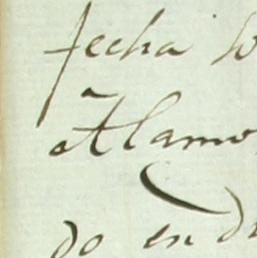 fecha
Alamo
do en